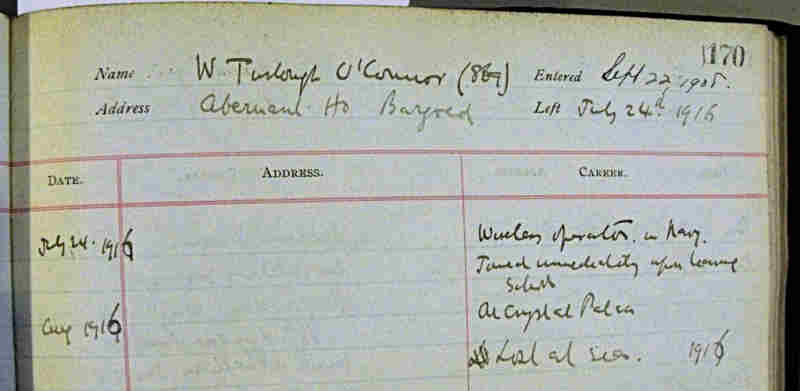 170
Name W. Turlough O'Connor (869) Entered Sept 22, 1908.
Address Abernant Ho Bargoed Left July 24th 1916
DATE. ADDRESS. CAREER.
July 24. 1916 Wireless operator in Navy.
Joined immediately upon leaving
School
At Crystal Palace
Aug 1916
Lost at sea. 1916